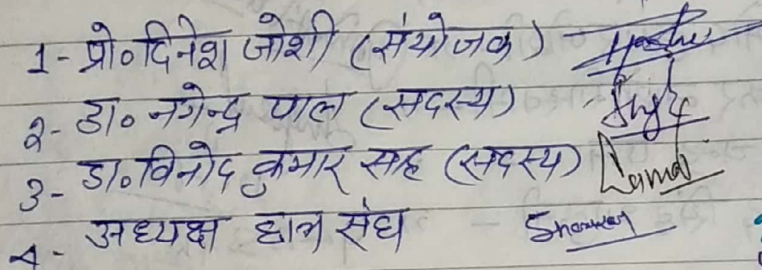 1- प्रो० दिनेश जोशी (संयोजक)
2- डा० नगेन्द्र पाल (सदस्य)
3- डा० विनोद कुमार साह (सदस्य)
4- अध्यक्ष छात्र संघ